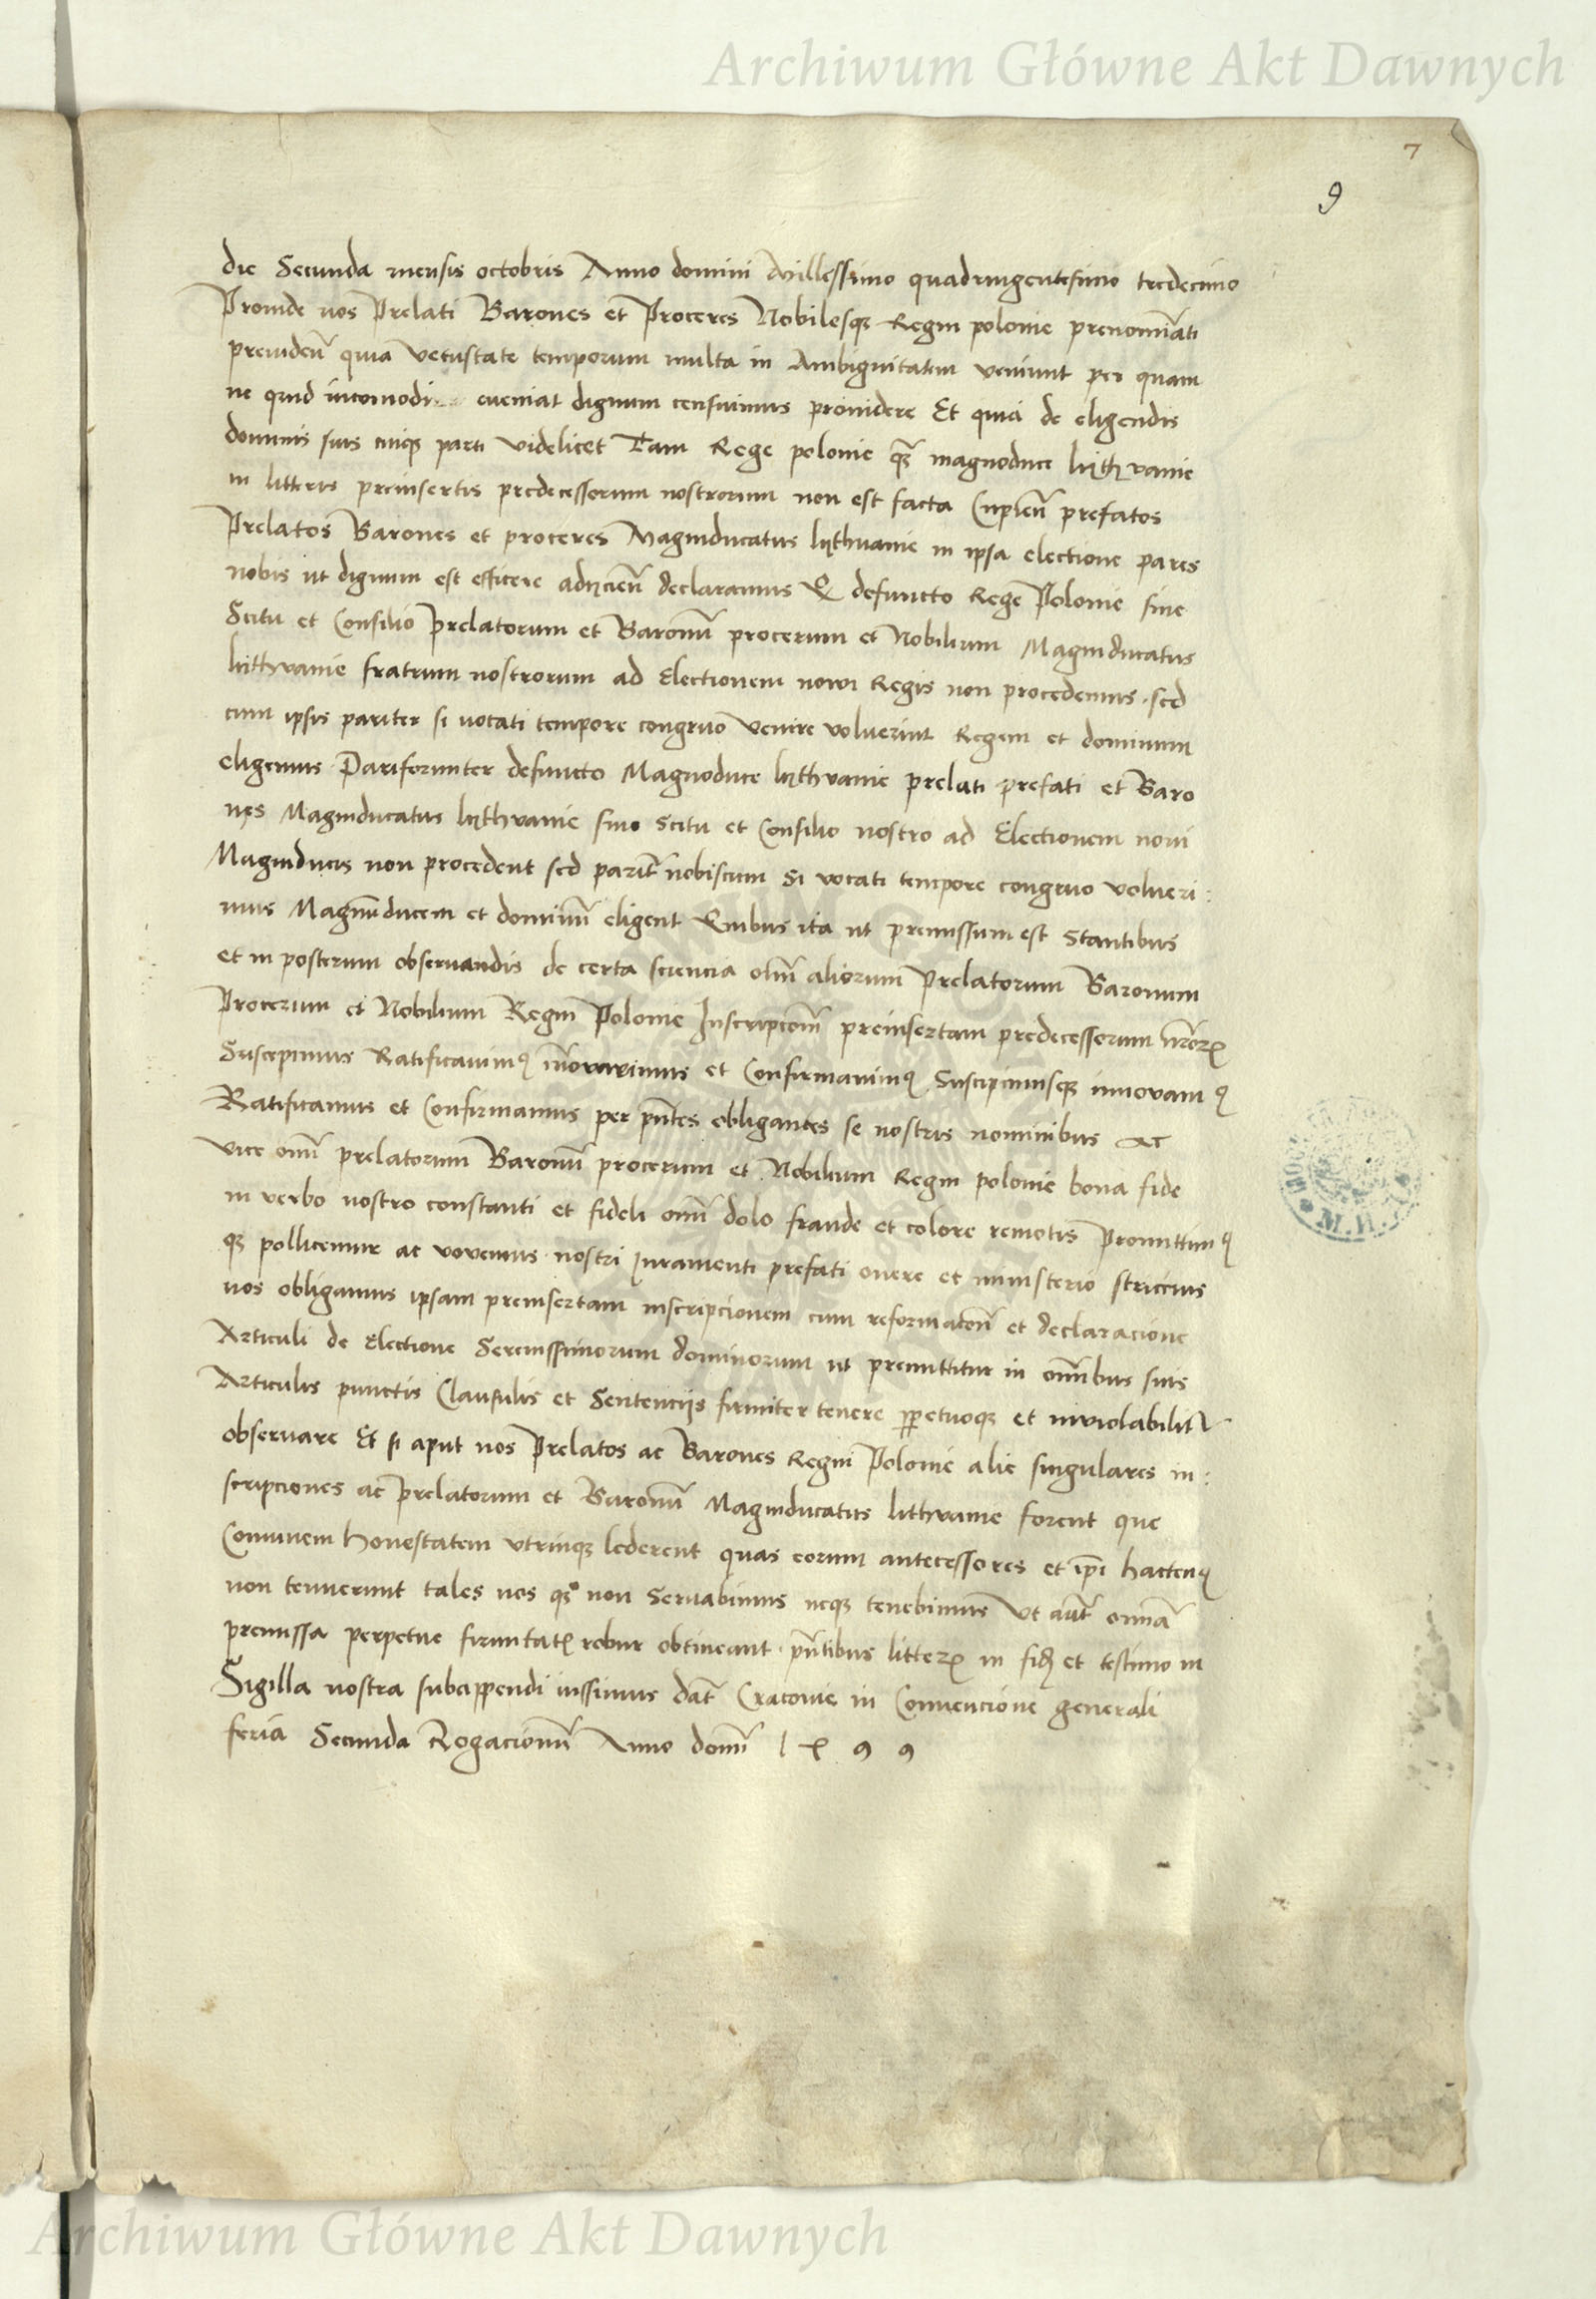 Archiwum Główne Akt Dawnych
7
9
die Secunda mensis octobris Anno domini Millessimo quadringentesimo tredecimo
Proinde nos Prelati Barones et Proceres Nobilesqz Regni polonie prenomiāti
prouideñ quia vetustate temporum multa in Ambiguitatem veniunt per quam
ne quid incomodi eueniat dignum censuimus prouidere Et quia de eligendis
dominis suis cuiqz parti videlicet Tam Rege polonie qz̄ magnoduce lijthvanie
in litteris preinsertis predecessorum nostrorum non est facta Cupieñ prefatos
Prelatos Barones et proceres Magniducatus lijthuanie in ipsa electione pares
nobis ut dignum est efficere adijcieñ declaramus Q defuncto Rege Polonie sine
Scitu et Consilio Prelatorum et Baronū procerum et Nobilium Magniducatus
litthvanie fratrum nostrorum ad Electionem novi Regis non procedemus . sed
cum ipsis pariter si vocati tempore congruo venire voluerint Regem et dominum
eligemus Pariformiter defuncto Magnoduce lijthvanie prelati prefati et Baro
nes Magniducatus lijthvanie sine Scitu et Consilio nostro ad Electionem noui
Magniducis non procedent sed parit̄ nobiscum Si vocati tempore congruo volueri :
mus Magnūducem et dominū eligent Quibus ita ut premissum est Stantibus
et in posterum obseruandis de certa sciencia om̄ aliorum Prelatorum Baronum
Procerum et Nobilium Regni Polonie Inscripcōm̄ preinsertam predecessorum nr̄orꝝ
Suscepimus Ratificauimꝰ īnovavimus et Confirmauimꝰ Suscipimusqz innovamꝰ
Ratificamus et Confirmamus per pn̄tes obligantes se nostris nominibus ac
vice om̄ prelatorum Baronū procerum et Nobilium Regni polonie bona fide
in verbo nostro constanti et fideli om̄ dolo fraude et colore remotis Promittimꝰ
qz pollicemur ac vovemus nostri Juramenti prefati onere et ministerio striccius
nos obligamus ipsam preinsertam inscripcionem cum reformacōn̄ et declaracione
Articuli de Electione Serenissimorum dominorum ut premittitur in om̄ibus suis
Articulis punctis Clausulis et Sentencijs firmiter tenere ꝑpetuoqz et inviolabilit̄
obseruare Et si aput nos Prelatos ac Barones Regni Polonie alie singulares in :
scripciones ac prelatorum et Baronū Magniducatus lithvanie forent que
Comunem honestatem vtrinqz lederent quas eorum antecessores et ip̄i hactenꝰ
non tenuerunt tales nos qz non Seruabimus neqz tenebimus Vt aūt omnīa
premissa perpetue firmitatꝭ robur obtineant . pn̄tibus litterꝭ in fidē et testimo m
Sigilla nostra subappendi iussimus dat̄ Cracovie in Convencione generali
feria Secunda Rogacionū Anno domī 1 4 9 9
Archiwum Główne Akt Dawnych